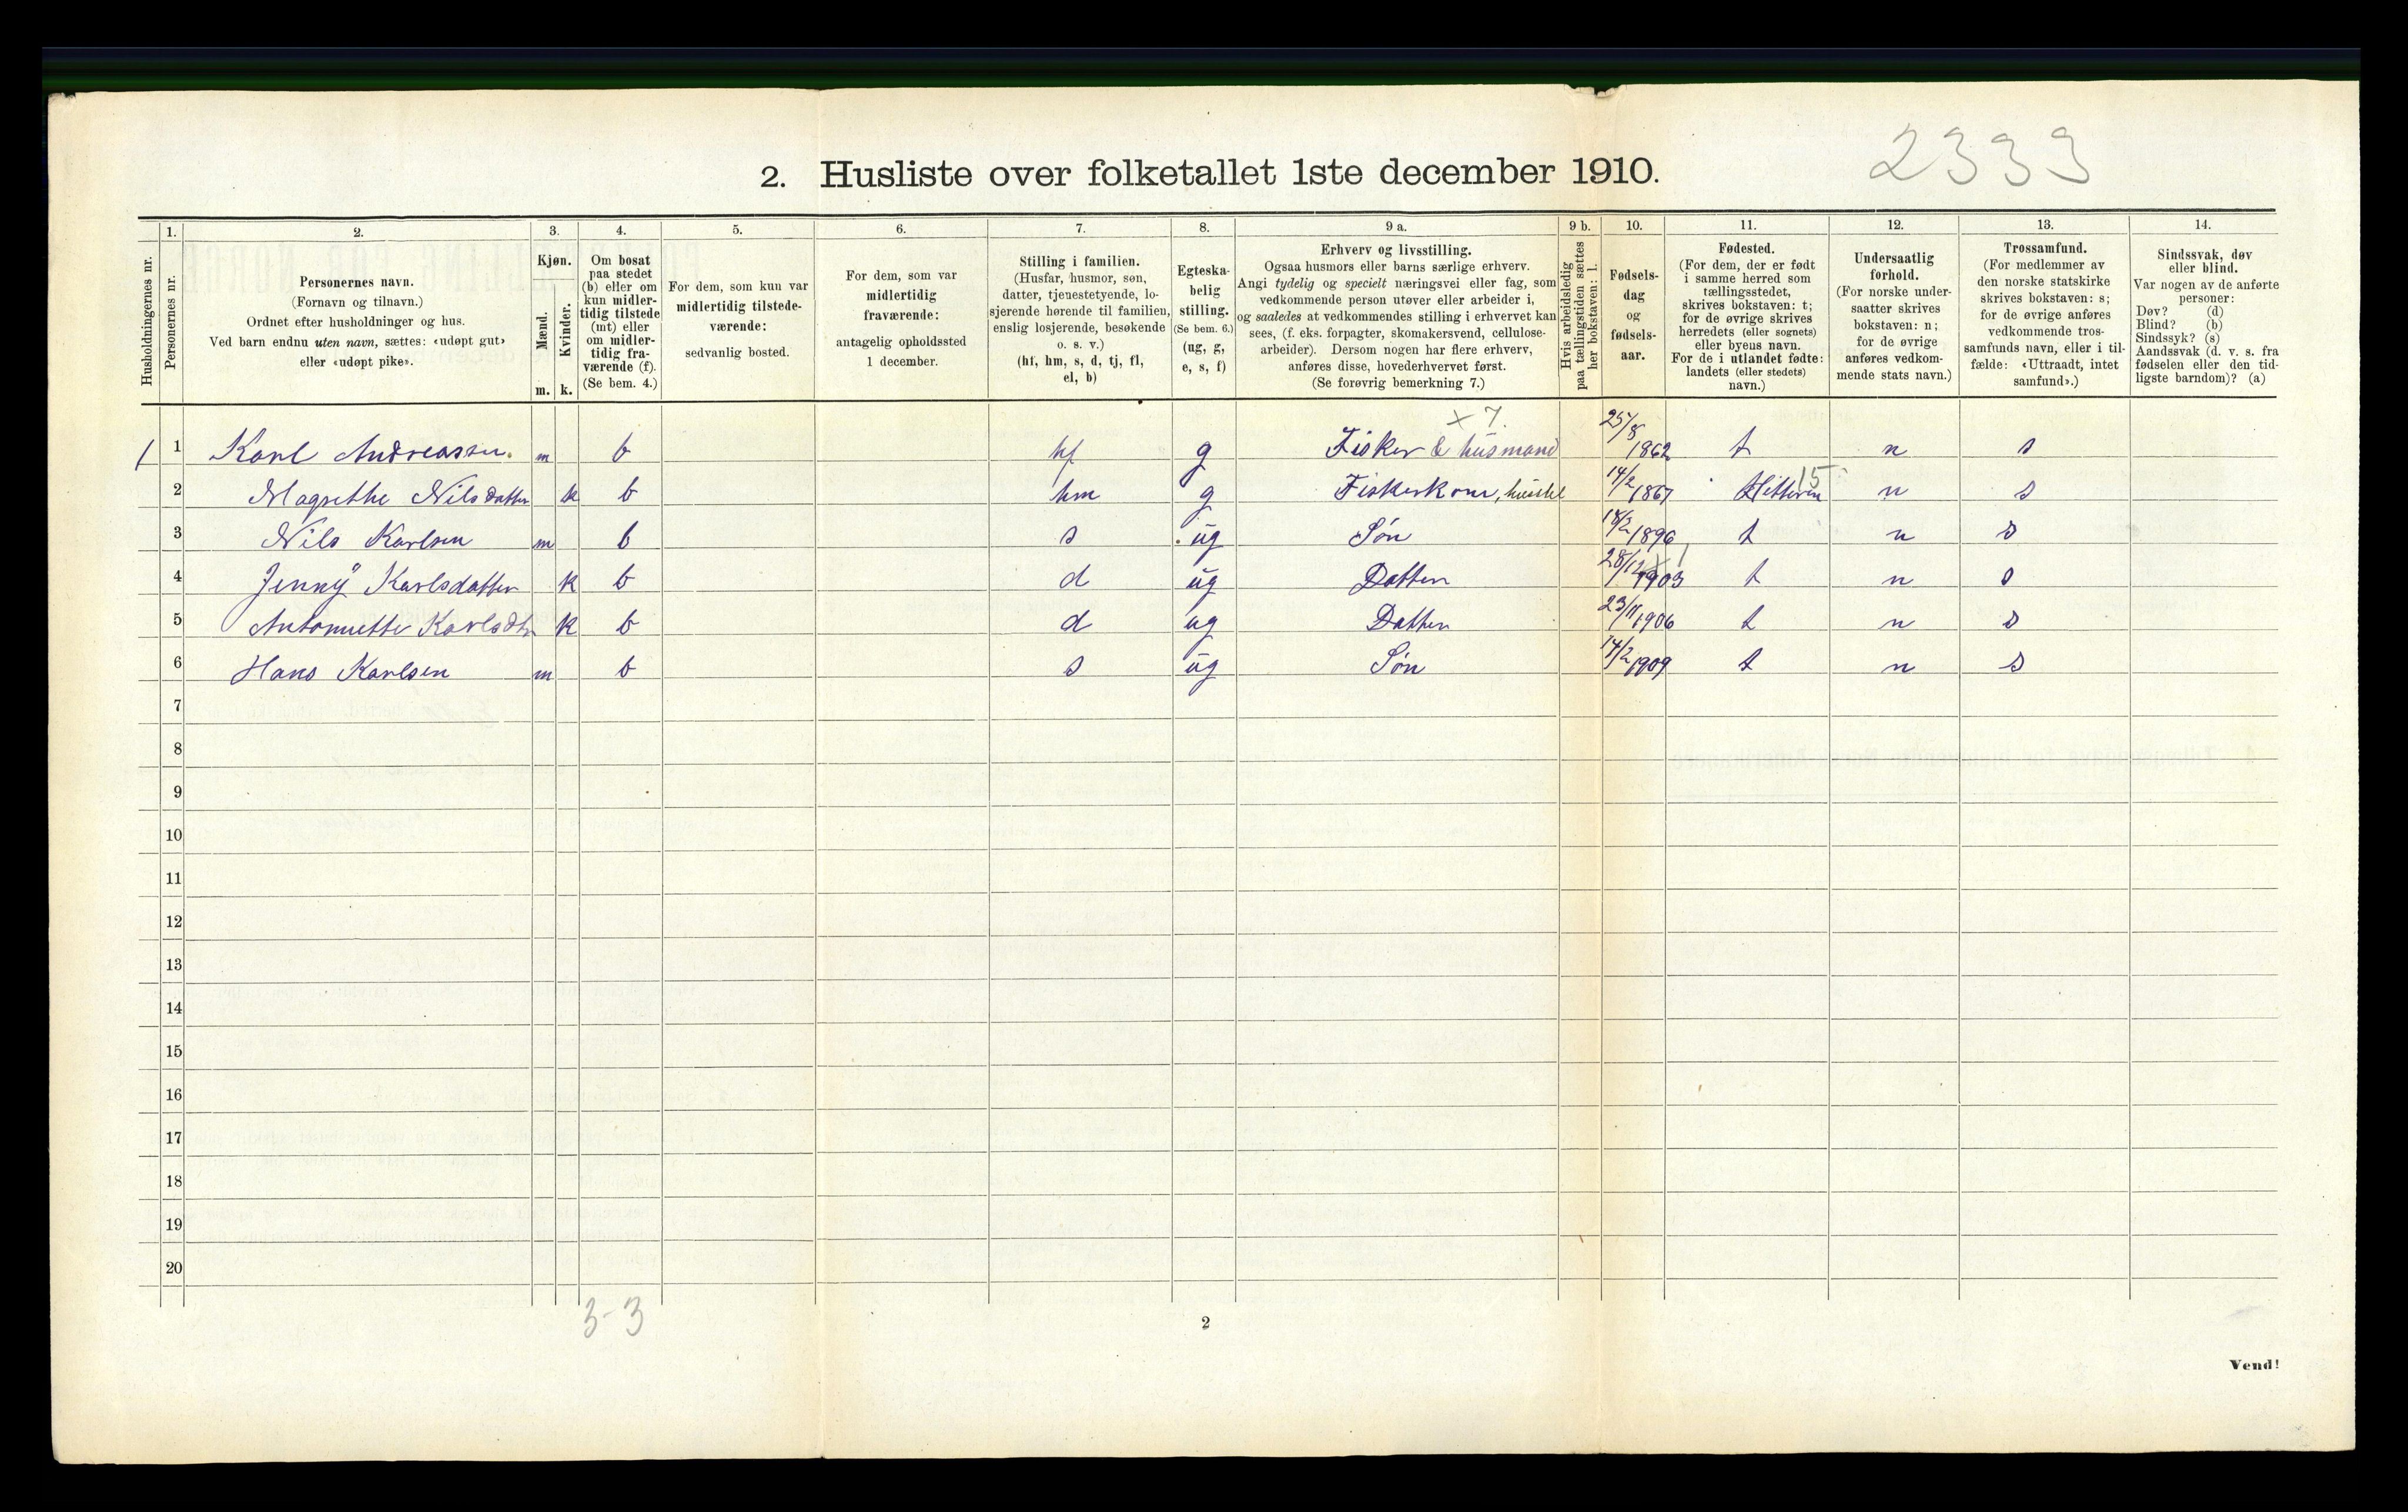 2333
2. Husliste over folketallet 1ste december 1910.
Husholdningernes nr.
1. Personernes nr.
2. Personernes navn.
(Fornavn og tilnavn.)
Ordnet efter husholdninger og hus.
Ved barn endnu uten navn, sættes: «udøpt gut»
eller «udøpt pike».
3. Kjøn.
Mænd. m.
Kvinder. k.
4. Om bosat
paa stedet
(b) eller om
kun midler-
tidig tilstede
(mt) eller
om midler-
tidig fra-
værende (f).
(Se bem. 4.)
5. For dem, som kun var
midlertidig tilstede-
værende:
sedvanlig bosted.
6. For dem, som var
midlertidig
fraværende:
antagelig opholdssted
1 december.
7. Stilling i familien.
(Husfar, husmor, søn,
datter, tjenestetyende, lo-
sjerende hørende til familien,
enslig losjerende, besøkende
o. s. v.)
(hf, hm, s, d, tj, fl,
el, b)
8. Egteska-
belig
stilling.
(Se bem. 6.)
(ug, g,
e, s, f)
9 a. Erhverv og livsstilling.
Ogsaa husmors eller barns særlige erhverv.
Angi tydelig og specielt næringsvei eller fag, som
vedkommende person utøver eller arbeider i,
og saaledes at vedkommendes stilling i erhvervet kan
sees, (f. eks. forpagter, skomakersvend, cellulose-
arbeider). Dersom nogen har flere erhverv,
anføres disse, hovederhvervet først.
(Se forøvrig bemerkning 7.)
9 b. Hvis arbeidsledig
paa tællingstiden sættes
her bokstaven: l.
10. Fødsels-
dag
og
fødsels-
aar.
11. Fødested.
(For dem, der er født
i samme herred som
tællingsstedet,
skrives bokstaven: t;
for de øvrige skrives
herredets (eller sognets)
eller byens navn.
For de i utlandet fødte:
landets (eller stedets)
navn.)
12. Undersaatlig
forhold.
(For norske under-
saatter skrives
bokstaven: n;
for de øvrige
anføres vedkom-
mende stats navn.)
13. Trossamfund.
(For medlemmer av
den norske statskirke
skrives bokstaven: s;
for de øvrige anføres
vedkommende tros-
samfunds navn, eller i til-
fælde: «Uttraadt, intet
samfund».)
14. Sindssvak, døv
eller blind.
Var nogen av de anførte
personer:
Døv? (d)
Blind? (b)
Sindssyk? (s)
Aandssvak (d. v. s. fra
fødselen eller den tid-
ligste barndom)? (a)
x 7.
1 1 Karl Andreassen. m b hf g Fisker & husmand 25/8 1862 t n s
15
2 Magrethe Nilsdatter k b hm g Fiskerkone, husstel 14/2 1867 Hitteren n s
3 Nils Karlsen m b s ug Søn 18/2 1896 t n s
4 Jenny Karlsdatter k b d ug Datter 28/12 1903 t n s
5 Antonnette Karlsdtr k b d ug Datter 23/11 1906 t n s
6 Hans Karlsen m b s ug Søn 14/2 1909 t n s
7
8
9
10
11
12
13
14
15
16
17
18
19
20
3-3
2
Vend!